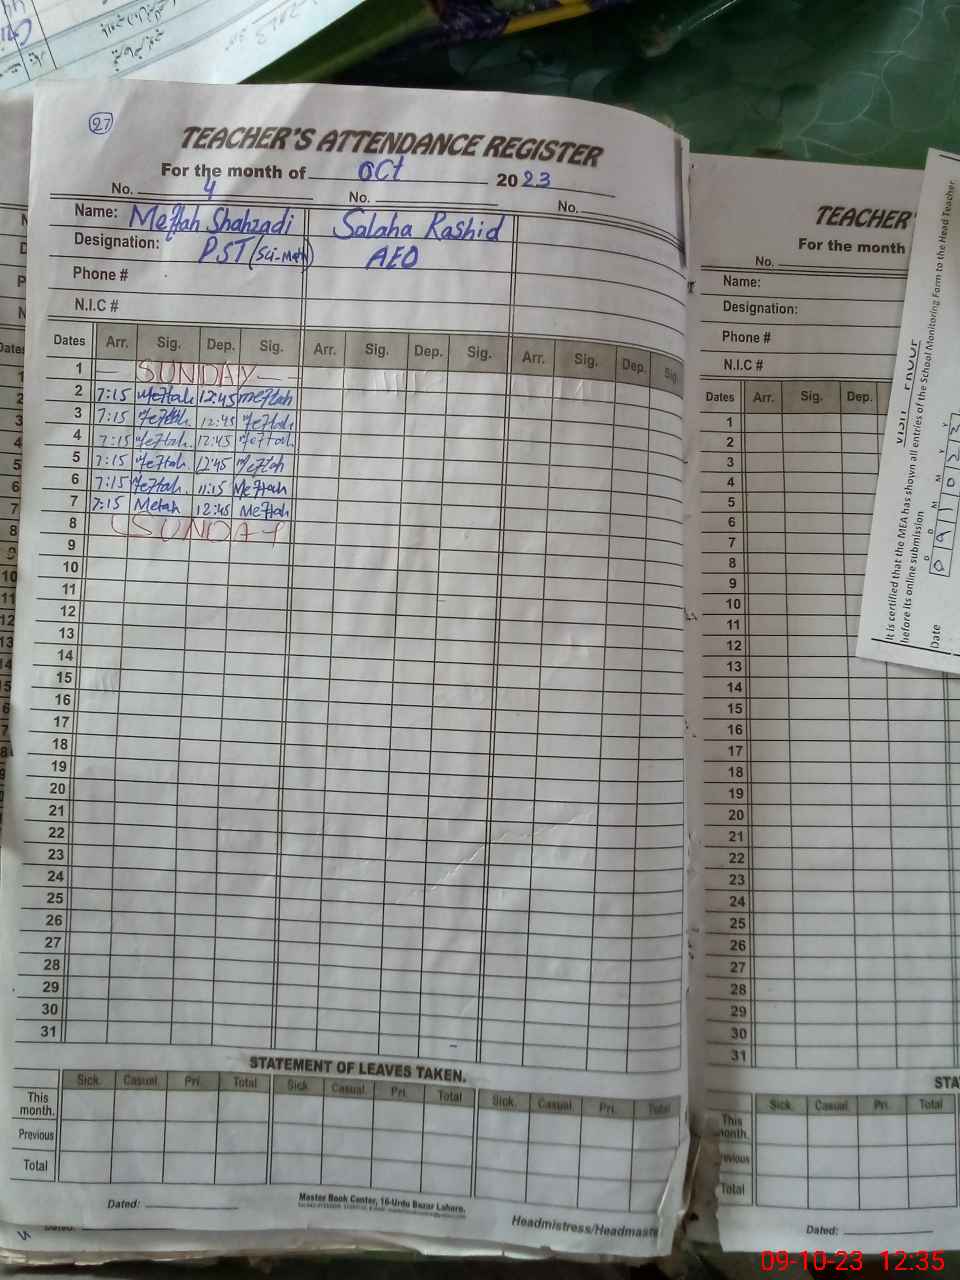 27
TEACHER'S ATTENDANCE REGISTER
For the month of Oct 2023
No. 4 No. No.
Name: Meftah Shahzadi Salaha Rashid
Designation: PST (Sci-Math) AEO
Phone #
N.I.C #
Dates Arr. Sig. Dep. Sig. Arr. Sig. Dep. Sig. Arr. Sig. Dep. Sig.
1 SUNDAY
2 7:15 Meftah 12:45 Meftah
3 7:15 Meftah 12:45 Meftah
4 7:15 Meftah 12:45 Meftah
5 7:15 Meftah 12:45 Meftah
6 7:15 Meftah 11:15 Meftah
7 7:15 Metah 12:45 Meftah
8 SUNDAY
9
10
11
12
13
14
15
16
17
18
19
20
21
22
23
24
25
26
27
28
29
30
31
STATEMENT OF LEAVES TAKEN.
Sick. Casual. Pri. Total Sick. Casual. Pri. Total Sick. Casual. Pri. Total
This month.
Previous
Total
Dated:
Master Book Center, 16-Urdu Bazar Lahore.
Headmistress/Headmaste
TEACHER'
For the month
No.
Name:
Designation:
Phone #
N.I.C #
Dates Arr. Sig. Dep.
1
2
3
4
5
6
7
8
9
10
11
12
13
14
15
16
17
18
19
20
21
22
23
24
25
26
27
28
29
30
31
STA
Sick. Casual. Pri. Total
This month.
Previous
Total
Dated:
It is certified that the MEA has shown all entries of the School Monitoring Form to the Head Teacher
before its online submission
Date
D D M M Y Y
0 9 1 0 2 3
09-10-23 12:35